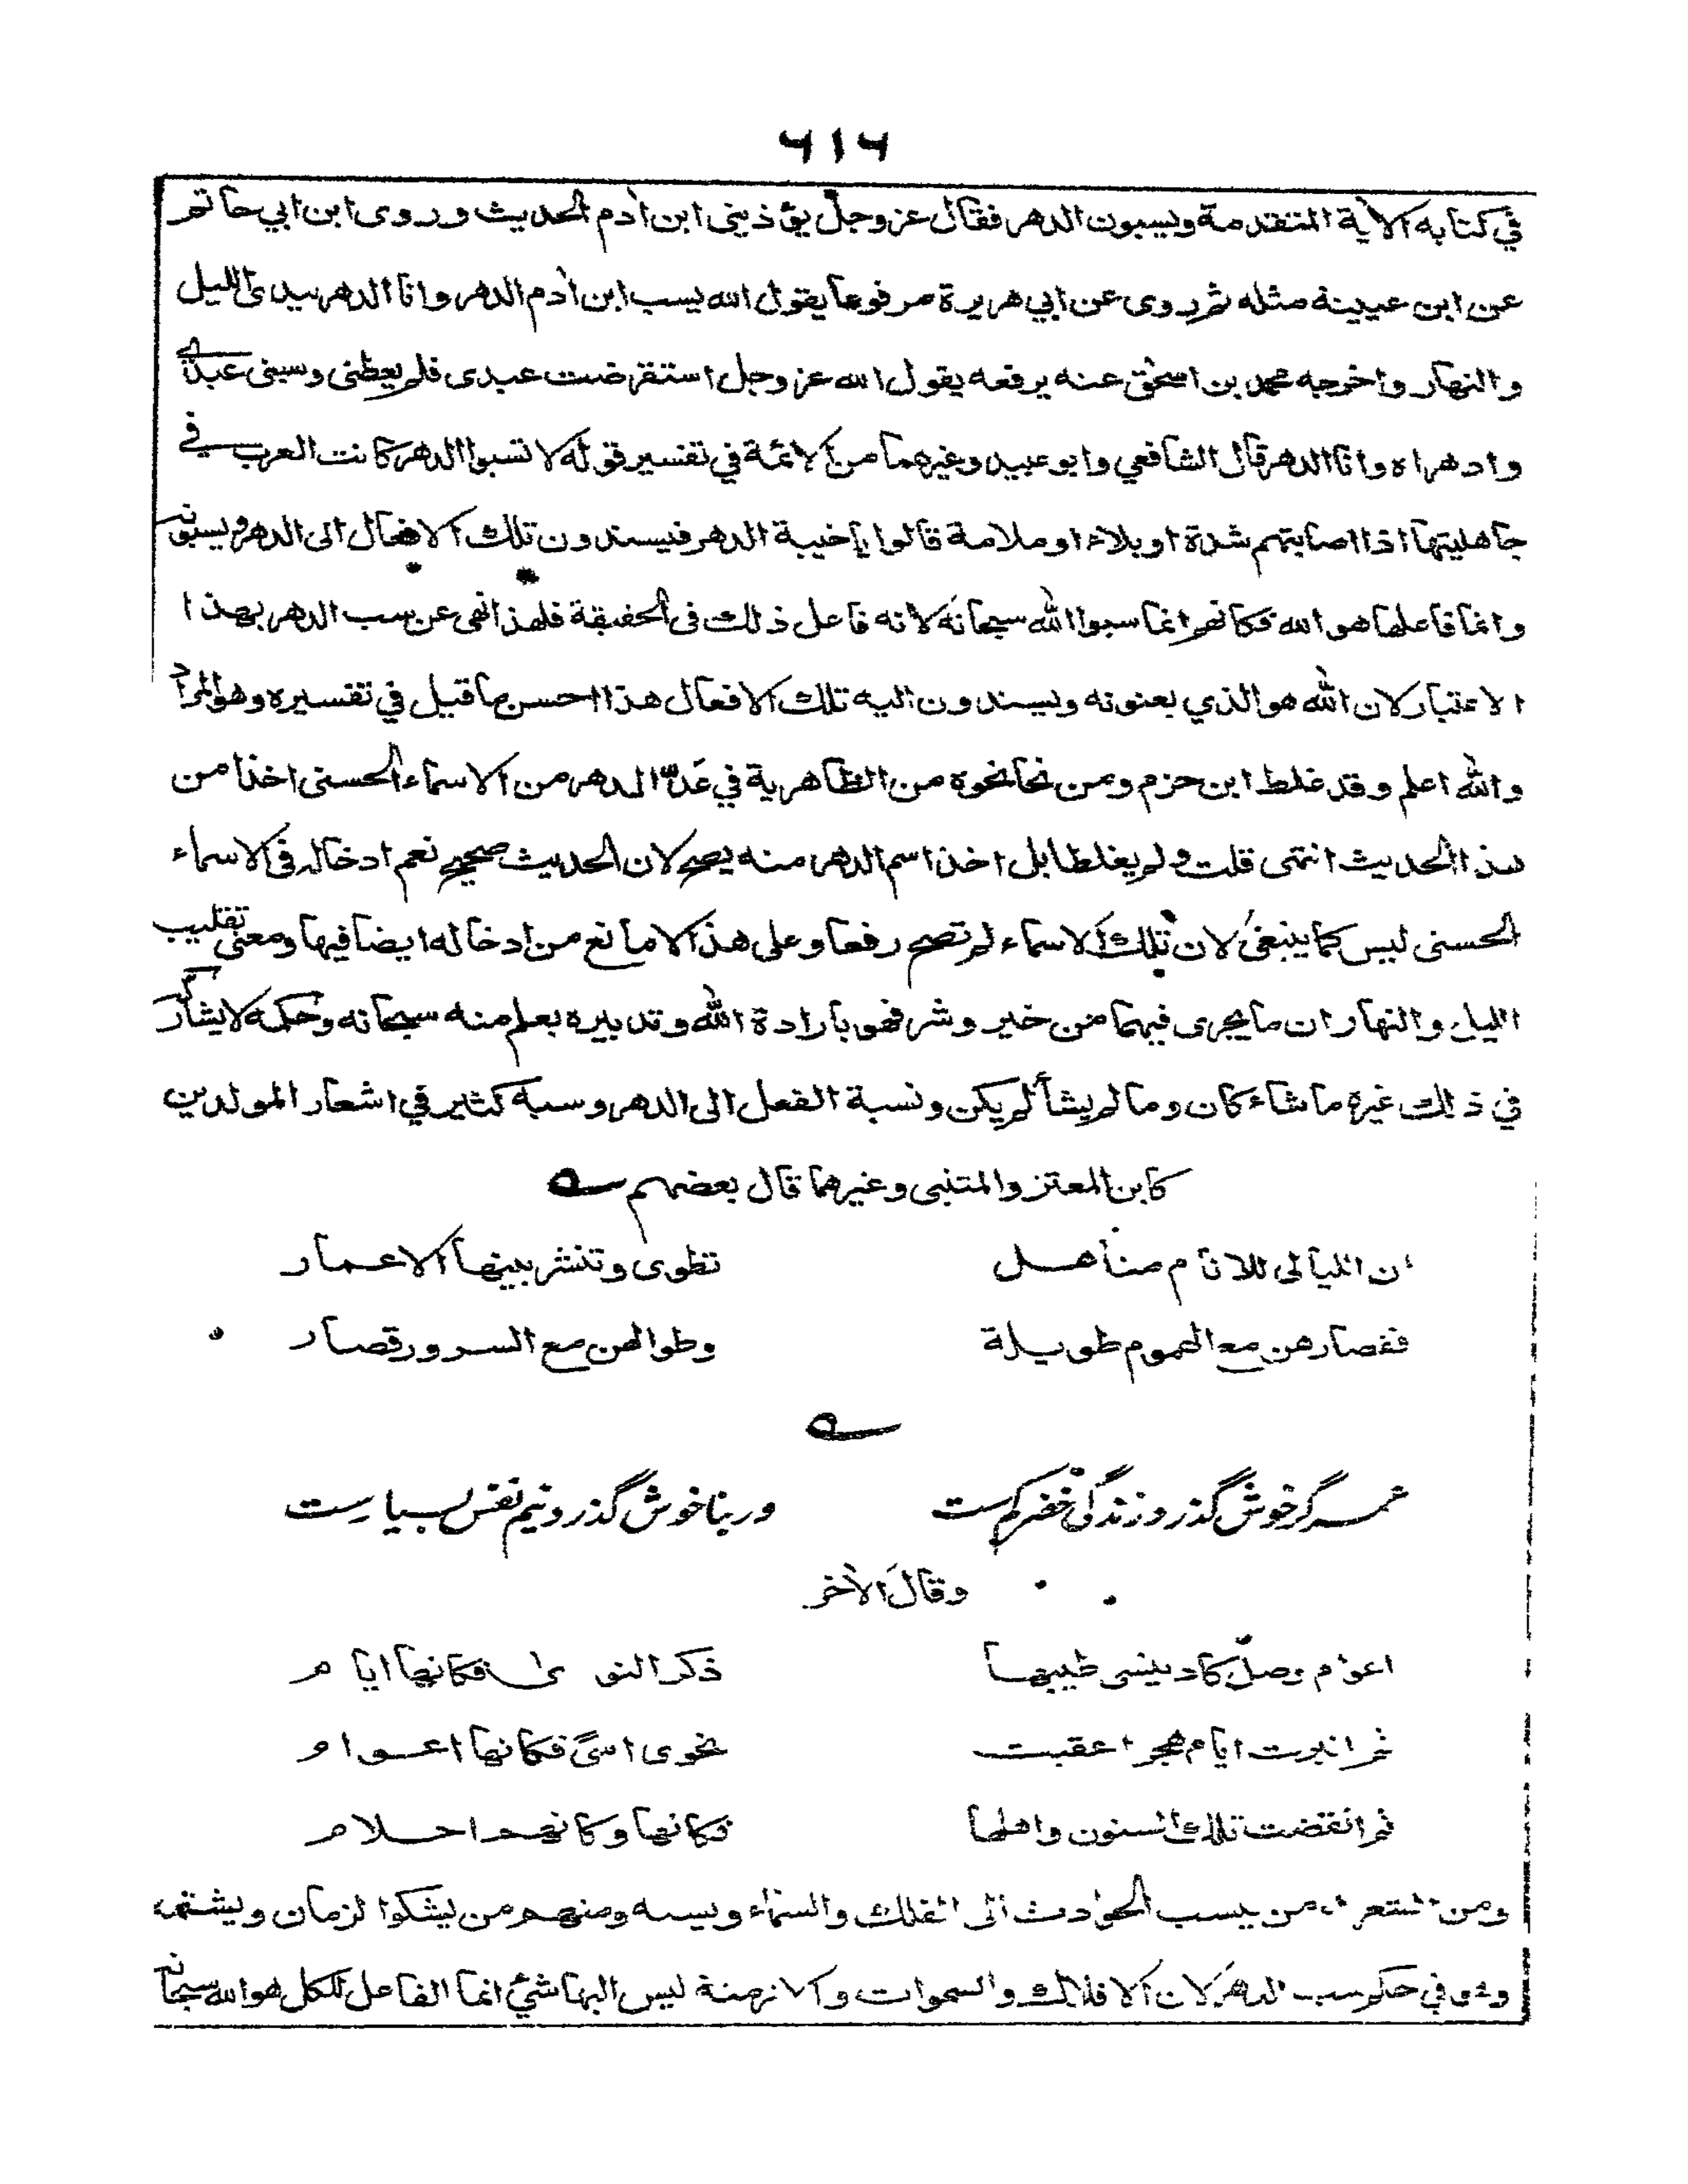 ٦١٦
في كتابه الآية المتقدمة ويسبون الدهر فقال عز وجل يؤذيني ابن ادم الحديث وروى ابن ابي حاتم
عن ابن عيينة مثله ثم روى عن ابي هريرة مرفوعا يقول الله يسب ابن ادم الدهر وانا الدهر بيدى الليل
والنهار واخرجه محمد بن اسحق عنه يرفعه يقول الله عز وجل استقرضت عبدى فلم يعطنى وسبنى عبدي
وادهراه وانا الدهر قال الشافعي وابو عبيد وغيرهما من الائمة في تفسير قوله لا تسبوا الدهر كانت العرب في
جاهليتها اذا اصابتهم شدة او بلاء او ملامة قالوا يا خيبة الدهر فيسندون تلك الافعال الى الدهر ويسبونه
وانما فاعلها هو الله فكانهم انما سبوا الله سبحانه لانه فاعل ذلك فى الحقيقة فلهذا نهى عن سب الدهر بهذا
الاعتبار لان الله هو الذي يعنونه ويسندون اليه تلك الافعال هذا احسن ما قيل في تفسيره وهو المراد
والله اعلم وقد غلط ابن حزم ومن نحا نحوه من الظاهرية في عدّ الدهر من الاسماء الحسنى اخذا من
هذا الحديث انتهى قلت ولم يغلطا بل اخذ اسم الدهر منه يصح لان الحديث صحيح نعم ادخاله فى الاسماء
الحسنى ليس كما ينبغى لان تلك الاسماء لم تصح رفعا وعلى هذا لا مانع من ادخاله ايضا فيها ومعنى تقليب
الليل والنهار ان ما يجرى فيهما من خير وشر فهو بارادة الله وتدبيره بعلم منه سبحانه وحكمه لا يشاركه
في ذلك غيره ما شاء كان وما لم يشأ لم يكن ونسبة الفعل الى الدهر وسبه كثير في اشعار المولدين
كابن المعتز والمتنبى وغيرهما قال بعضهم
ان الليالى للانام مناهل تطوى وتنشر بينها الاعمار
فقصارهن مع الهموم طويلة وطوالهن مع السرور قصار
عمر گر خوش گذرد زندگی خضر کم ست ور بنا خوش گذرد نیم نفس بسیار ست
وقال الآخر
اعوام وصل كاد ينسى طيبها ذكر النوى فكانها ايام
ثم انبرت ايام هجر اعقبت نحوى اسىً فكانها اعوام
ثم انقضت تلك السنون واهلها فكانها وكانهم احلام
ومن الشعراء من يسب الحوادث الى الفلك والسماء ويسبه ومنهم من يشكوا لزمان ويشتمه
وهو في حكم سب الدهر لان الافلاك والسموات والازمنة ليس اليها شئ انما الفاعل للكل هو الله سبحانه